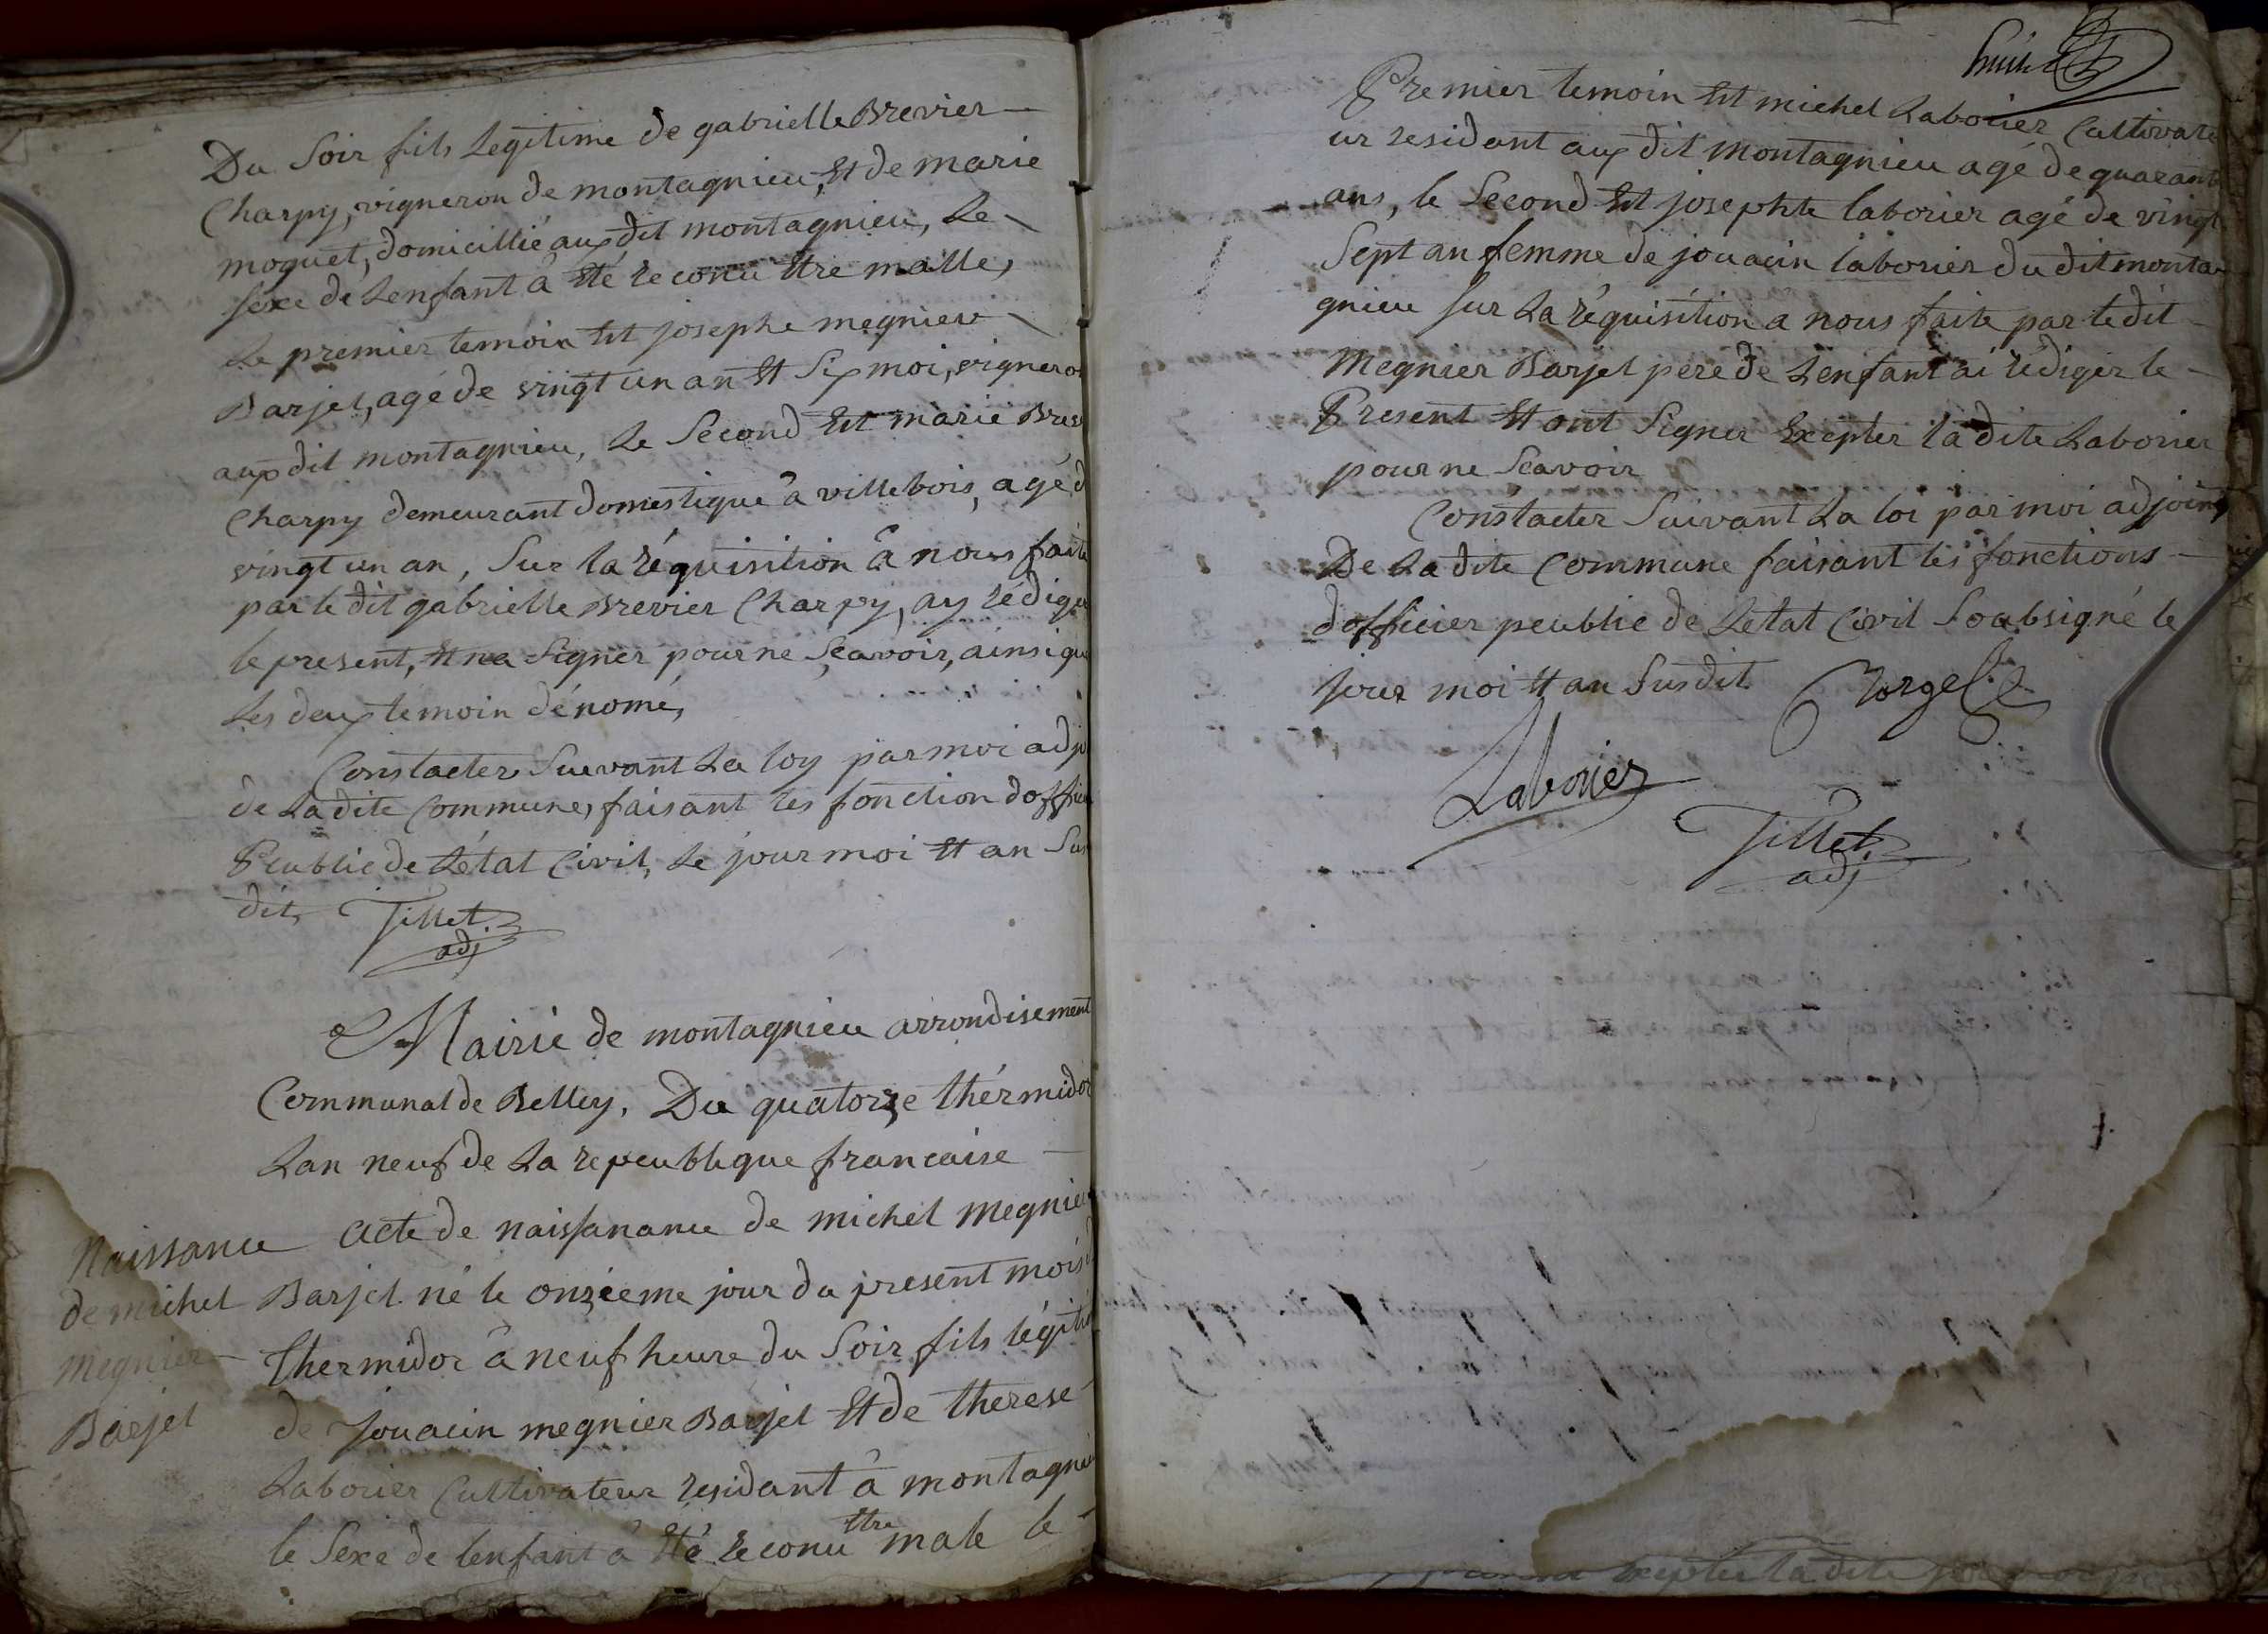 Du Soir fils Legitime de gabrielle Brevier
Charpy, vigneron de montagnieu, Et de marie
moquet, domicillié aux dit montagnieu, Le
sexe de Lenfant â Eté reconu Etre malle,
Le premier temoin Est josephe megnier
Barjet, agé de vingt un an Et Six moi, vigneron
aux dit montagnieu, Le Second Est marie Brev
Charpy demeurant domestique â villebois, agé d
vingt un an, Sur la réquisition â nous faite
par le dit gabrielle Brevier Charpy, ay rédiger
le present, Et na Signer pour ne Sçavoir, ainsi que
Les deux temoin dénomé,
Constacter Suivant La loy par moi adjo
de La dite Commune, faisant les fonction doffici
Peublic de Létat Civil, Le jour moi Et an Sus
dit, Tillet
adj
Mairie de montagnieu arrondisement
Communal de Belley, Du quatorze thérmidor
Lan neuf de La repeublique francaise
Naissance
de michel
megnier
Barjet
Acte de naissanance de michel megnier
Barjet né le onzieme jour du present mois d
Thermidor â neuf heure du Soir fils légiti
de Jouacin megnier Barjet Et de therese
Laborier Cultivateur residant â montagnieu
le Sexe de lenfant â Eté reconu Etre male le
Premier temoin Est michel Laborier Cultivate
ur residant aux dit montagnieu agé de quarante
ans, le Second Est josephte laborier agé de vingt
Sept an femme de jouacin laborier du dit monta
gnieu Sur La réquisition a nous faite par le dit
Megnier Barjet pere de Lenfant ai rédiger le
Present Et ont Signer Excepter la dite Laborier
pour ne Scavoir
Constacter Suivant La loi par moi adjoint
De La dite Commune faisant les fonctions
dofficier peublic de Létat Civil Soubsigné le
jour moi Et an Susdit
Laborier
Tillet
adj
Excepter la dite